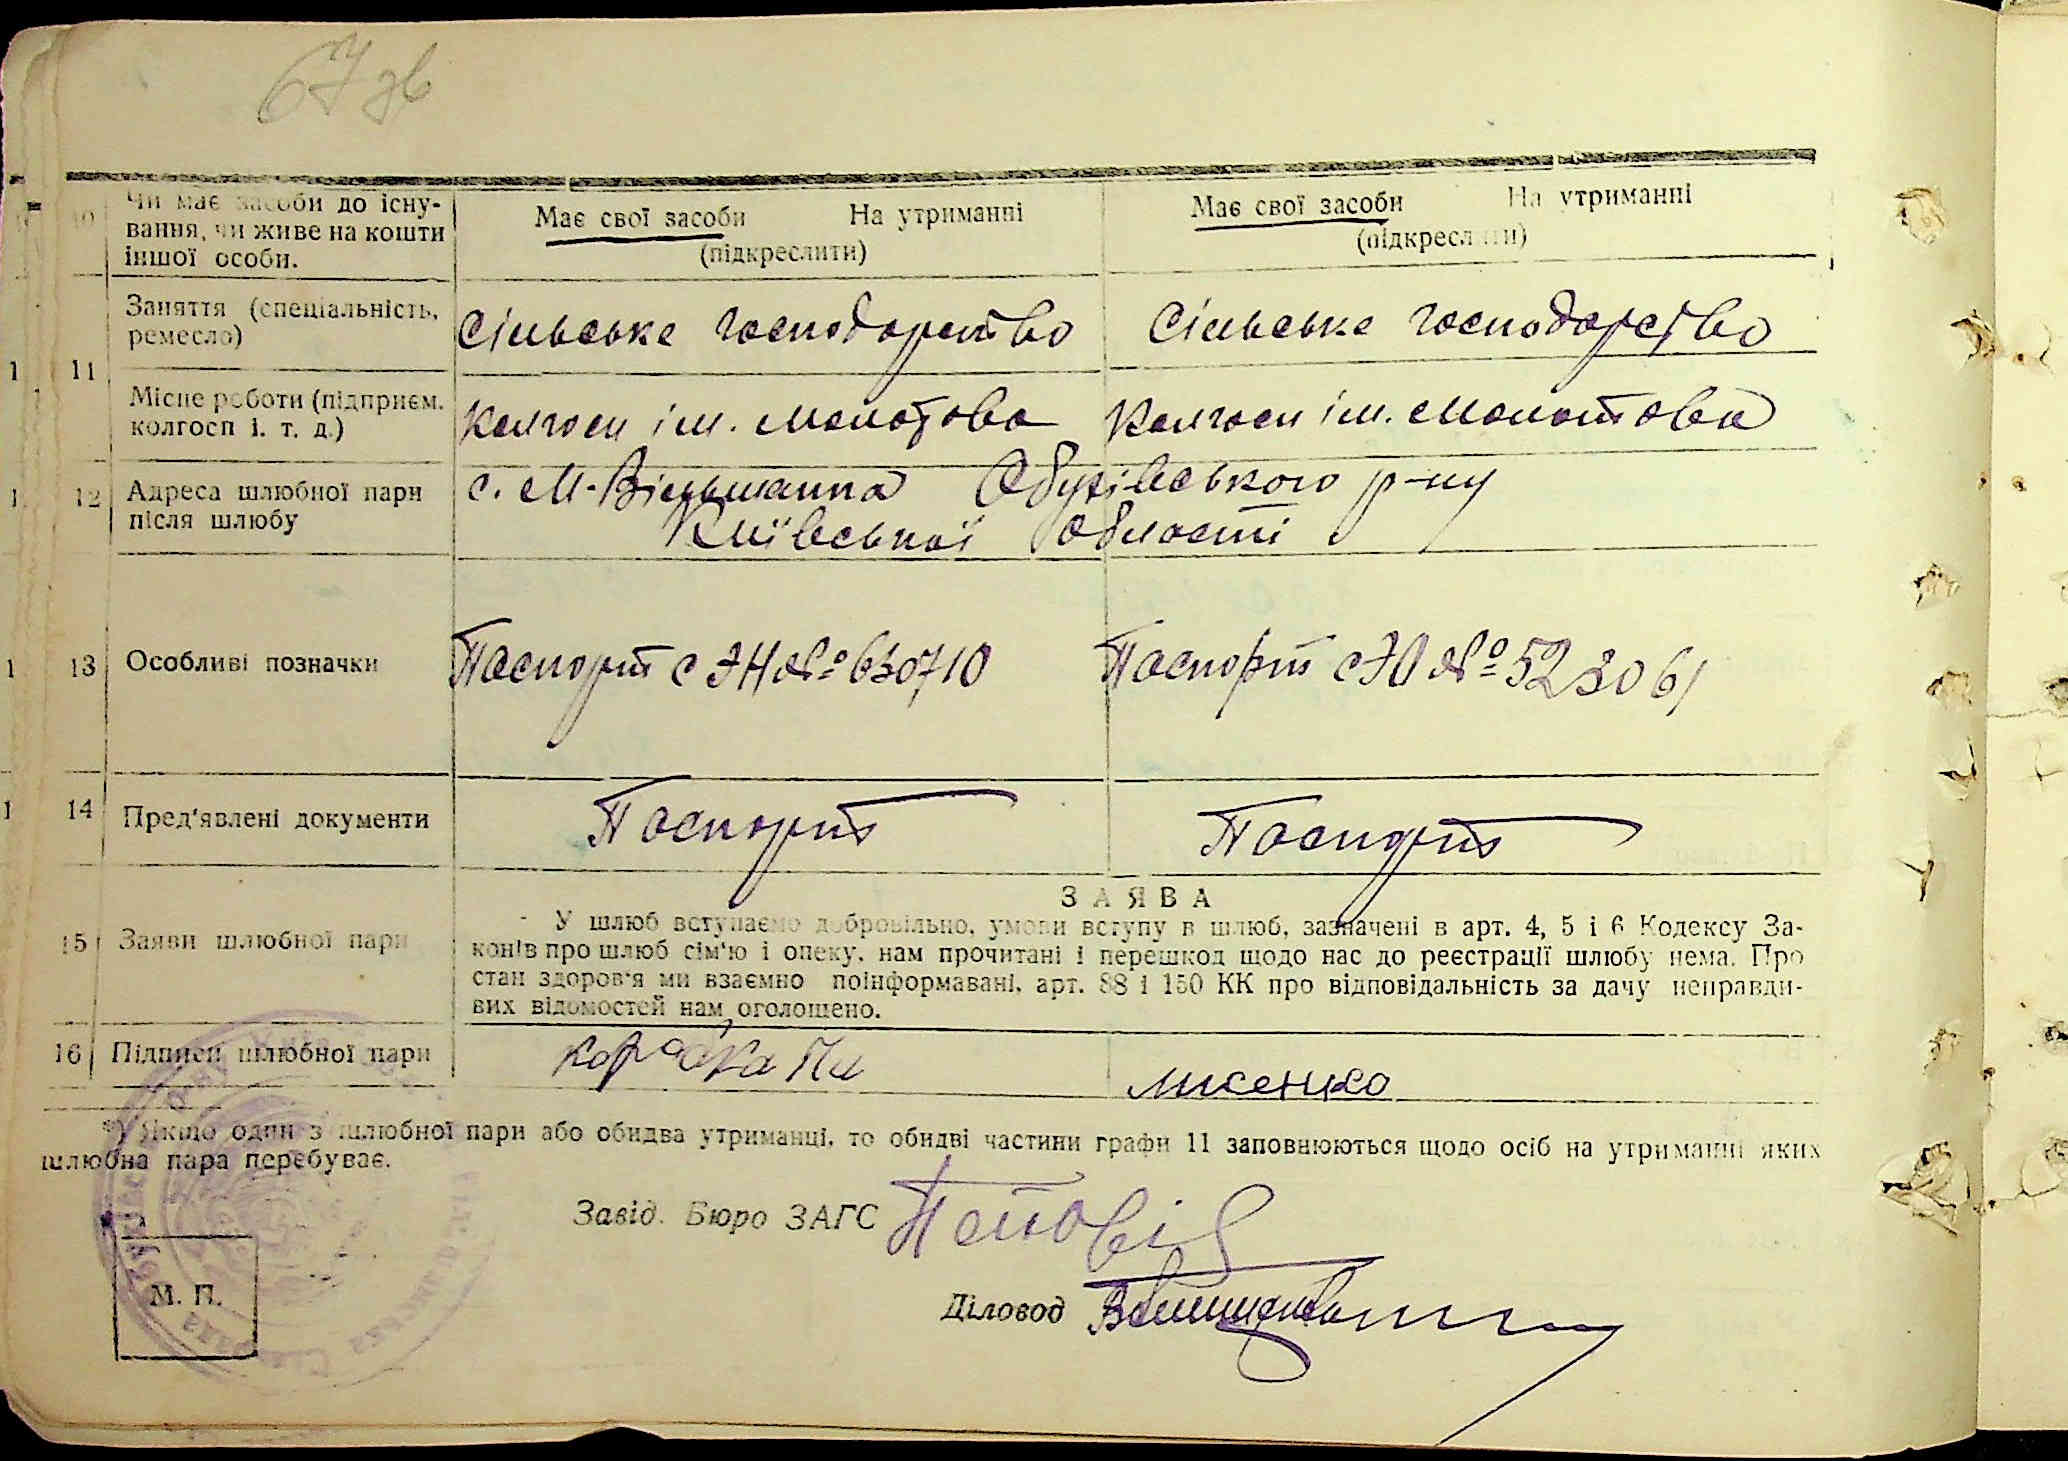 67 зв
10 Чи має засоби до існу-
вання, чи живе на кошти
іншої особи.
Має свої засоби На утриманні
(підкреслити)
Має свої засоби На утриманні
(підкреслити)
11 Заняття (спеціальність,
ремесло)
Сільське господарство
Сільське господарство
Місце роботи (підприєм.
колгосп і. т. д.)
Колгосп ім. Молотова
Колгосп ім. Молотова
12 Адреса шлюбної пари
після шлюбу
с. М-Вільшанка Обухівського р-ну
Київської області
13 Особливі позначки
Паспорт с ЭН № 630710
Паспорт с ЭЮ № 523061
14 Пред'явлені документи
Паспорт
Паспорт
15 Заяви шлюбної пари
ЗАЯВА
У шлюб вступаємо добровільно, умови вступу в шлюб, зазначені в арт. 4, 5 і 6 Кодексу За-
конів про шлюб сім'ю і опеку, нам прочитані і перешкод щодо нас до реєстрації шлюбу нема. Про
стан здоров'я ми взаємно поінформавані, арт. 88 і 150 КК про відповідальність за дачу неправди-
вих відомостей нам оголошено.
16 Підписи шлюбної пари
лисенко
*) Якщо один з шлюбної пари або обидва утриманці, то обидві частини графи 11 заповнюються щодо осіб на утриманні яких
шлюбна пара перебуває.
Завід. Бюро ЗАГС
Діловод
М. П.